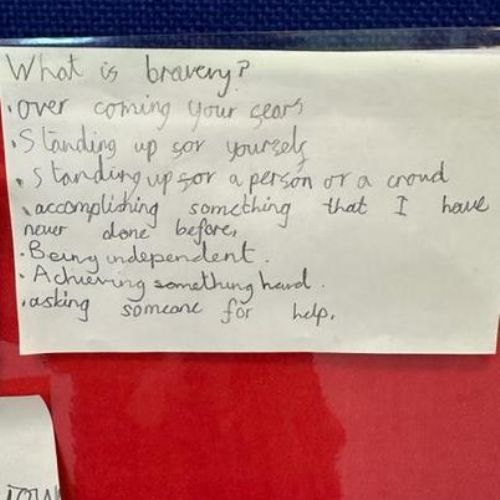 What is bravery?
• over coming your fears
• Standing up for yourself
• Standing up for a person or a crowd
• accomplishing something that I have
never done before.
• Being independent.
• Achieving something hard.
• asking someone for help.